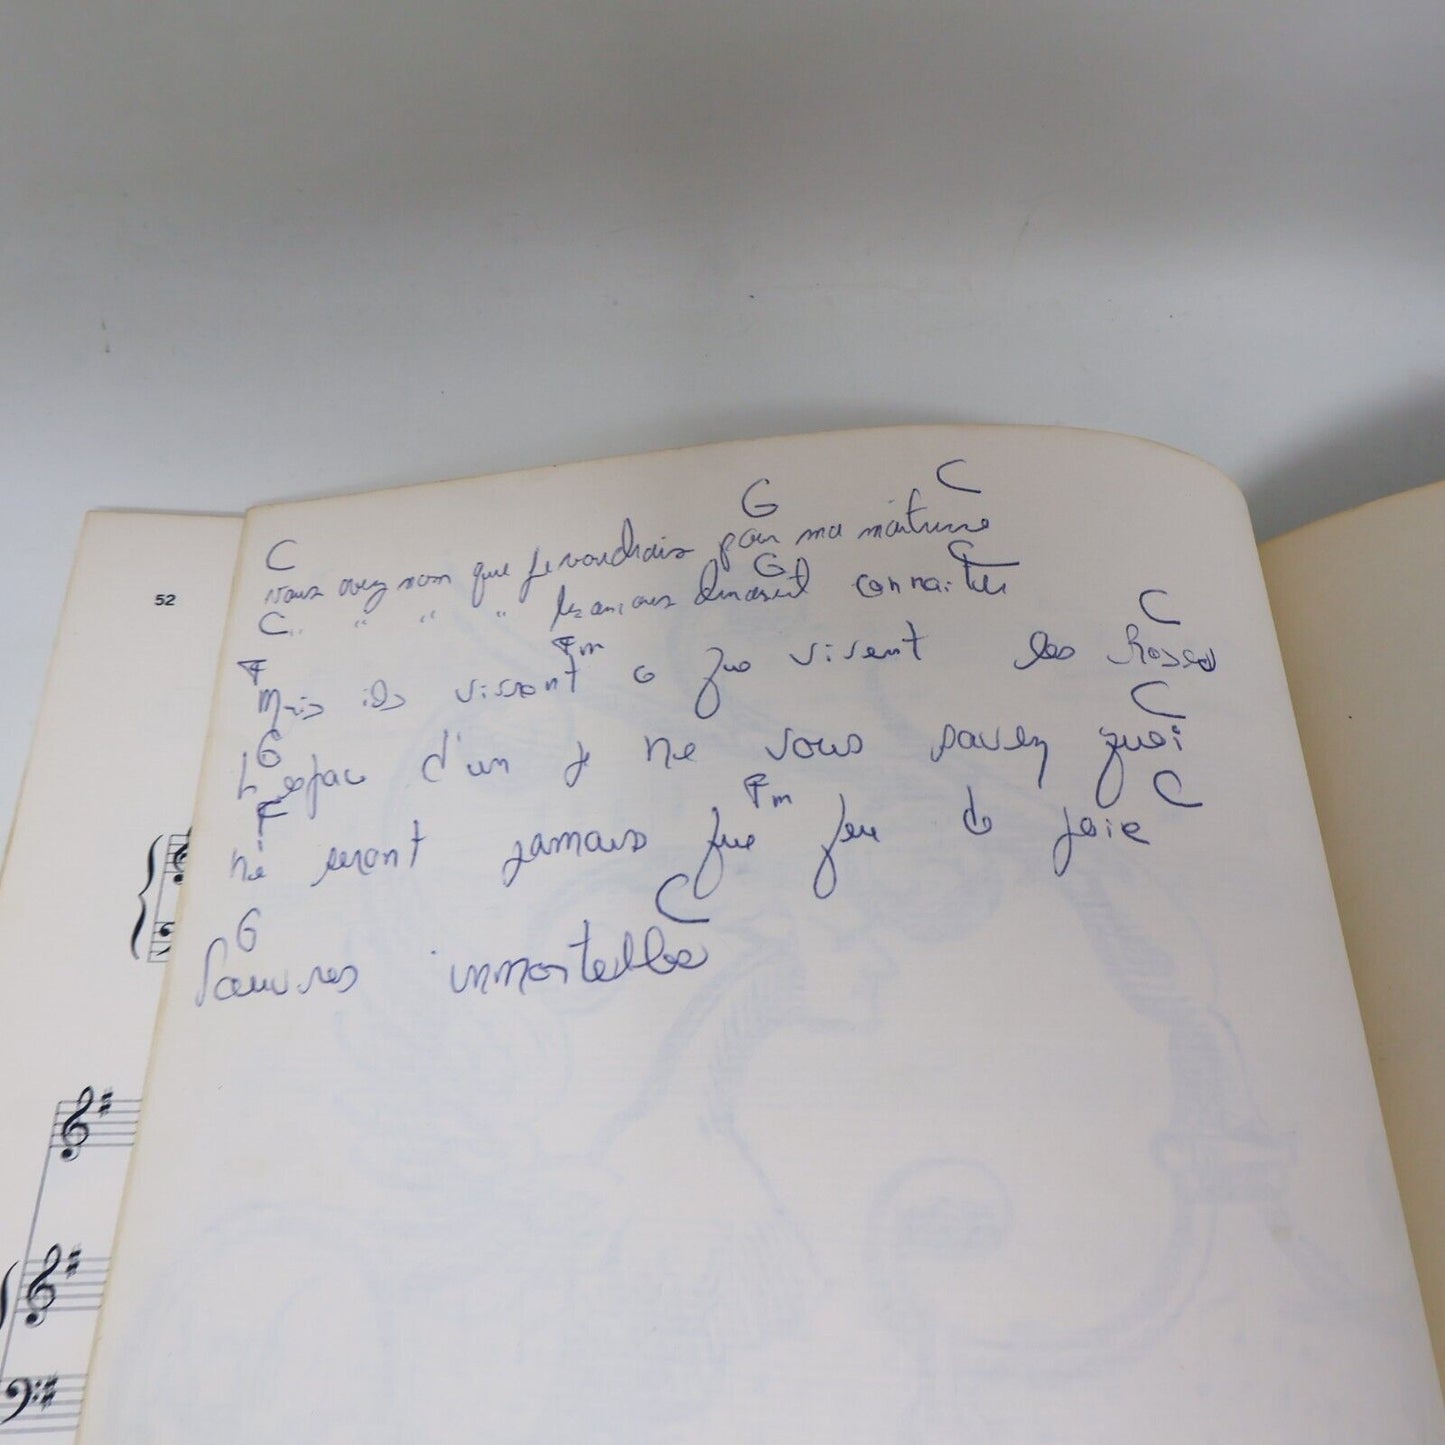 C G C
vous avez nom que je voudrais pour ma maitresse
C G C
" " " " les amours devraient connaitre
F Fm C
Mais ils vivront ce que vivent les Roses
G C
L'espace d'un je ne vous savez quoi
F Fm C
ne seront jamais que feu de joie
G C
Pauvres immortelles
52